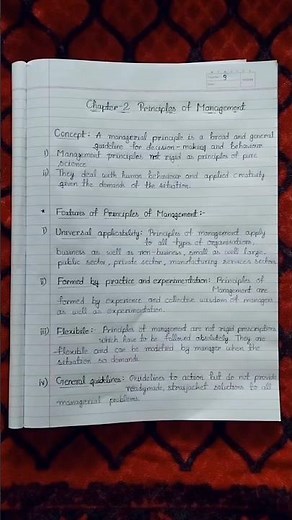 9
Chapter-2 Principles of Management
Concept:- A managerial principle is a broad and general
guideline for decision-making and behaviour
i) Management principles not rigid as principles of pure
science.
ii) They deal with human behaviour and applied creatively
given the demands of the situation.
* Features of Principles of Management:-
i) Universal applicability: Principles of management apply
to all types of organisations,
business as well as non-business, small as well large,
public sector, private sector, manufacturing services sectors.
ii) Formed by practice and experimentation: Principles of
Management are
formed by experience and collective wisdom of managers
as well as experimentation.
iii) Flexibile:- Principles of management are not rigid prescriptions
which have to be followed absolutely. They are
flexible and can be modified by manager when the
situation so demands.
iv) General guidelines: Guidelines to action but do not provide
readymade, straijacket solutions to all
managerial problems.